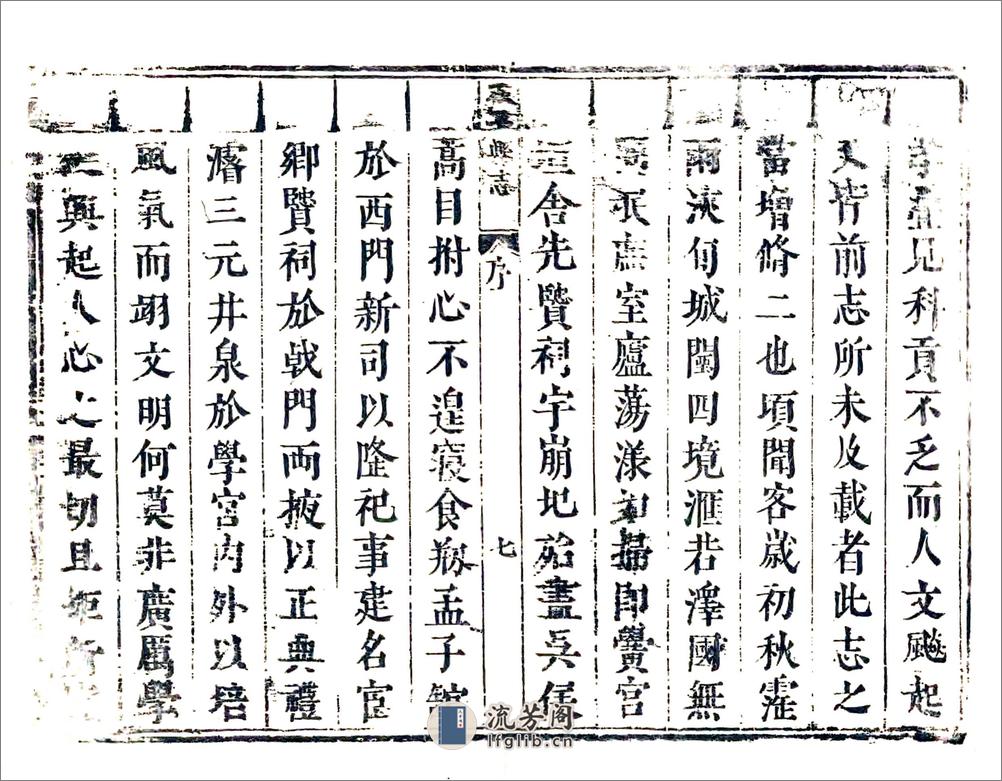 見科貢不乏而人文颷起
又皆前志所未及載者此志之
當增修二也頃聞客歲初秋霪
雨浹旬城闉四境滙若澤國無
室廬蕩漾如掃即黌宮
舍先賢祠宇崩圮殆盡吳侯
縣志 序 七
蒿目拊心不遑寢食捐孟子
於西門新司以隆祀事建名宦
鄉賢祠於戟門兩掖以正典禮
濬三元井泉於學宮內外以培
風氣而翊文明何莫非廣厲學
興起人心之最切且
流芳阁
lfglib.cn